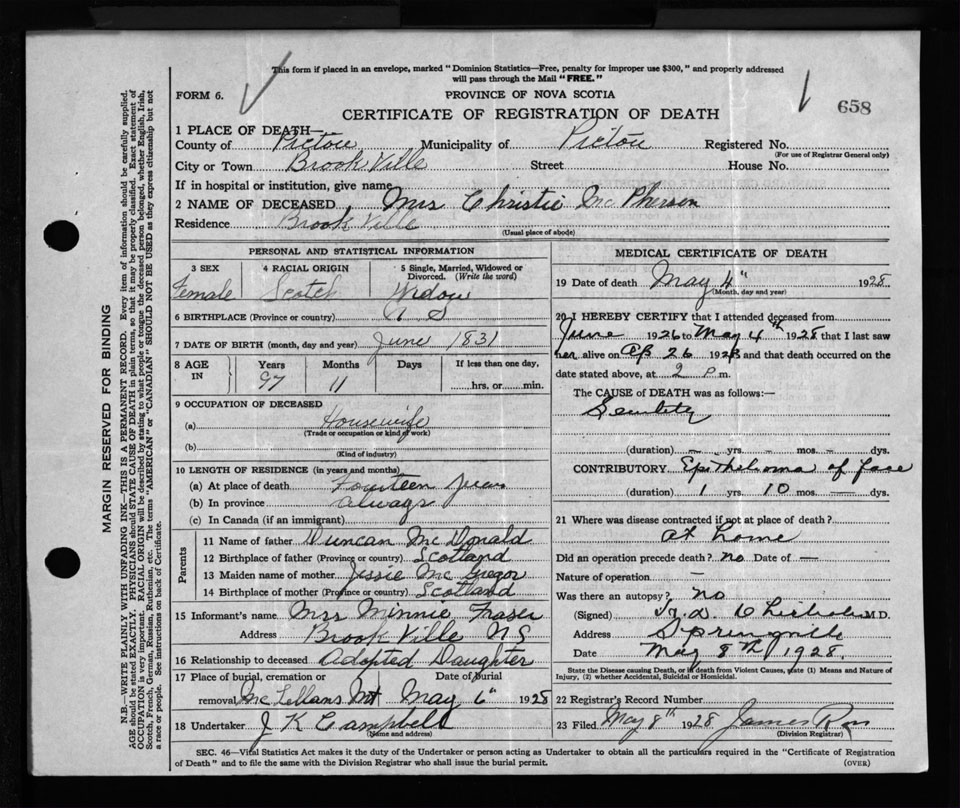 This form if placed in an envelope, marked "Dominion Statistics—Free, penalty for improper use $300," and properly addressed
will pass through the Mail "FREE."
FORM 6.
PROVINCE OF NOVA SCOTIA
CERTIFICATE OF REGISTRATION OF DEATH
658
1 PLACE OF DEATH—
County of Pictou Municipality of Pictou Registered No.
(For use of Registrar General only)
City or Town Brook Ville Street House No.
If in hospital or institution, give name
2 NAME OF DECEASED Mrs Christie Mc Pherson
Residence Brook Ville
(Usual place of abode)
PERSONAL AND STATISTICAL INFORMATION
3 SEX 4 RACIAL ORIGIN 5 Single, Married, Widowed or
Divorced. (Write the word)
Female Scotch Widow
6 BIRTHPLACE (Province or country) N S
7 DATE OF BIRTH (month, day and year) June 1831
8 AGE IN Years Months Days If less than one day,
97 11 hrs. or min.
9 OCCUPATION OF DECEASED
(a) Housewife
(Trade or occupation or kind of work)
(b)
(Kind of industry)
10 LENGTH OF RESIDENCE (in years and months)
(a) At place of death Fourteen Years
(b) In province always
(c) In Canada (if an immigrant)
Parents
11 Name of father Duncan Mc Donald
12 Birthplace of father (Province or country) Scotland
13 Maiden name of mother Jessie Mc Gregor
14 Birthplace of mother (Province or country) Scotland
15 Informant's name Mrs Minnie Fraser
Address Brook Ville N S
16 Relationship to deceased Adopted Daughter
17 Place of burial, cremation or Date of burial
removal Mc Lellans Mt May 6" 1928
18 Undertaker J K Campbell
(Name and address)
MEDICAL CERTIFICATE OF DEATH
19 Date of death May 4" 1928
(Month, day and year)
20 I HEREBY CERTIFY that I attended deceased from
June 1926 to May 4th 1928 that I last saw
her alive on Ap 26 1928 and that death occurred on the
date stated above, at 2 P m.
The CAUSE of DEATH was as follows:—
Senility
(duration) — yrs. — mos. — dys.
CONTRIBUTORY Epithelioma of face
(duration) 1 yrs. 10 mos. — dys.
21 Where was disease contracted if not at place of death?
at home
Did an operation precede death? no Date of —
Nature of operation —
Was there an autopsy? no
(Signed) M.D.
Address Springville
Date May 8th 1928
State the Disease causing Death, or in death from Violent Causes, state (1) Means and Nature of
Injury, (2) whether Accidental, Suicidal or Homicidal.
22 Registrar's Record Number
23 Filed May 8th 1928 James Ross
(Division Registrar)
SEC. 46—Vital Statistics Act makes it the duty of the Undertaker or person acting as Undertaker to obtain all the particulars required in the "Certificate of Registration
of Death" and to file the same with the Division Registrar who shall issue the burial permit. (OVER)
MARGIN RESERVED FOR BINDING
N.B.—WRITE PLAINLY WITH UNFADING INK—THIS IS A PERMANENT RECORD. Every item of information should be carefully supplied.
AGE should be stated EXACTLY. PHYSICIANS should STATE CAUSE OF DEATH in plain terms, so that it may be properly classified. Exact statement of
OCCUPATION is very important. RACIAL ORIGIN will be described by stating to what people or tongue the deceased person belonged, whether English, Irish,
Scotch, French, German, Russian, Ruthenian, etc. The terms "AMERICAN" or "CANADIAN" SHOULD NOT BE USED as they express citizenship but not
a race or people. See instructions on back of Certificate.